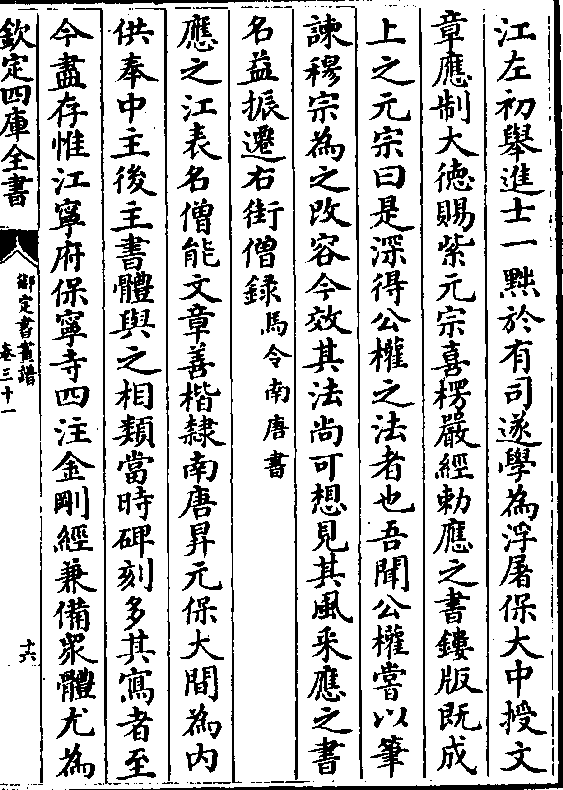 江左初舉進士一黜於有司遂學為浮屠保大中授文
章應制大徳賜紫元宗喜楞嚴經勅應之書鏤版既成
上之元宗曰是深得公權之法者也吾聞公權嘗以筆
諫穆宗為之改容今效其法尚可想見其風采應之書
名益振遷右街僧錄馬令南唐書
應之江表名僧能文章善楷隸南唐昇元保大間為内
供奉中主後主書體與之相類當時碑刻多其寫者至
今盡存惟江寧府保寧寺四注金剛經兼備衆體尤為
欽定四庫全書
御定書畫譜
卷三十一
十六